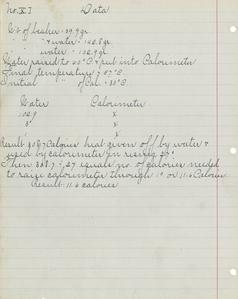 No. XI Data
Wt of beaker = 39.9 gr.
" " " + water = 142.8 gr.
" " water = 102.9 gr.
Water raised to 60° C + put into Calorimeter
Final temperature = 57° C.
Initial " of Cal. = 30° C.
Water Calorimeter
102.9 x
3° x
x
x
Result 308.7 Calories heat given off by water +
used by calorimeter in rising 27°
Then 308.7 ÷ 27 equals no. of calories needed
to raise calorimeter through 1° or 11.6 Calorie
Result 11.6 calories